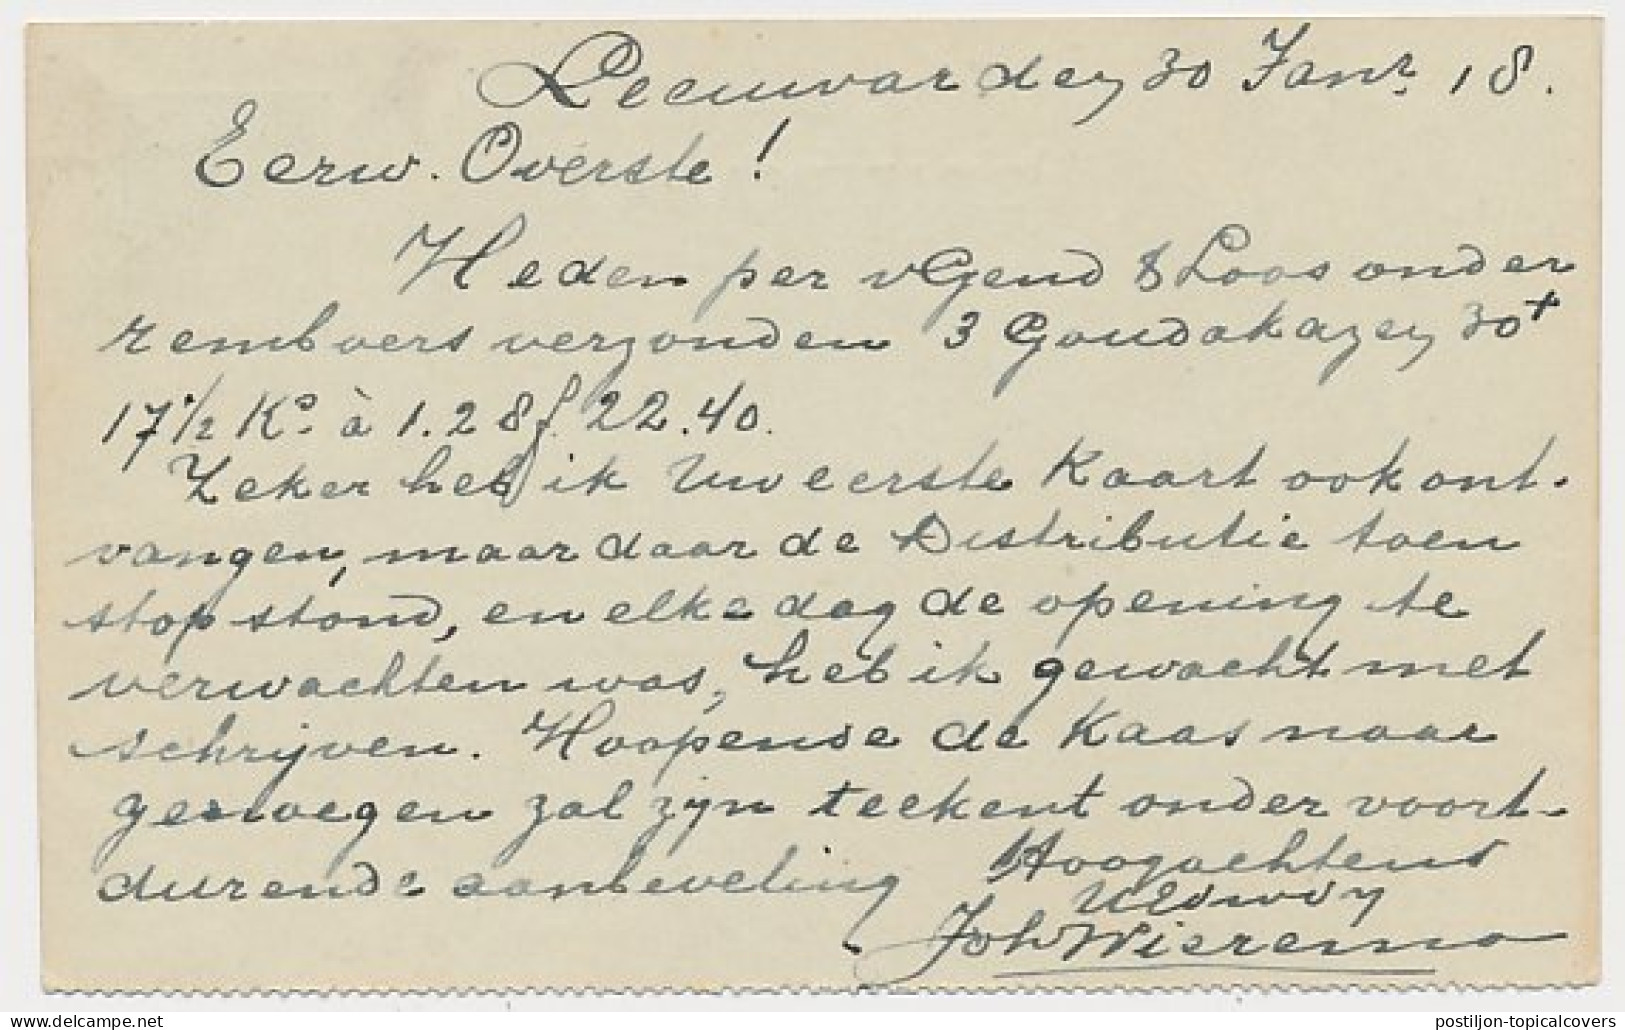 Leeuwarden 30 Janr. 18.
Eerw. Overste!
Heden per vGend & Loos onder
rembours verzonden 3 Goudakazen 30+
17 1/2 Ko. à 1.28 f. 22.40.
Zeker heb ik Uw eerste Kaart ook ont-
vangen, maar daar de Distributie toen
stop stond, en elke dag de opening te
verwachten was, heb ik gewacht met
schrijven. Hoopende de Kaas naar
genoegen zal zijn teekent onder voort-
durende aanbeveling Hoogachtend
UEdwdr
Joh Wierema
postiljon-topicalcovers
© www.delcampe.net